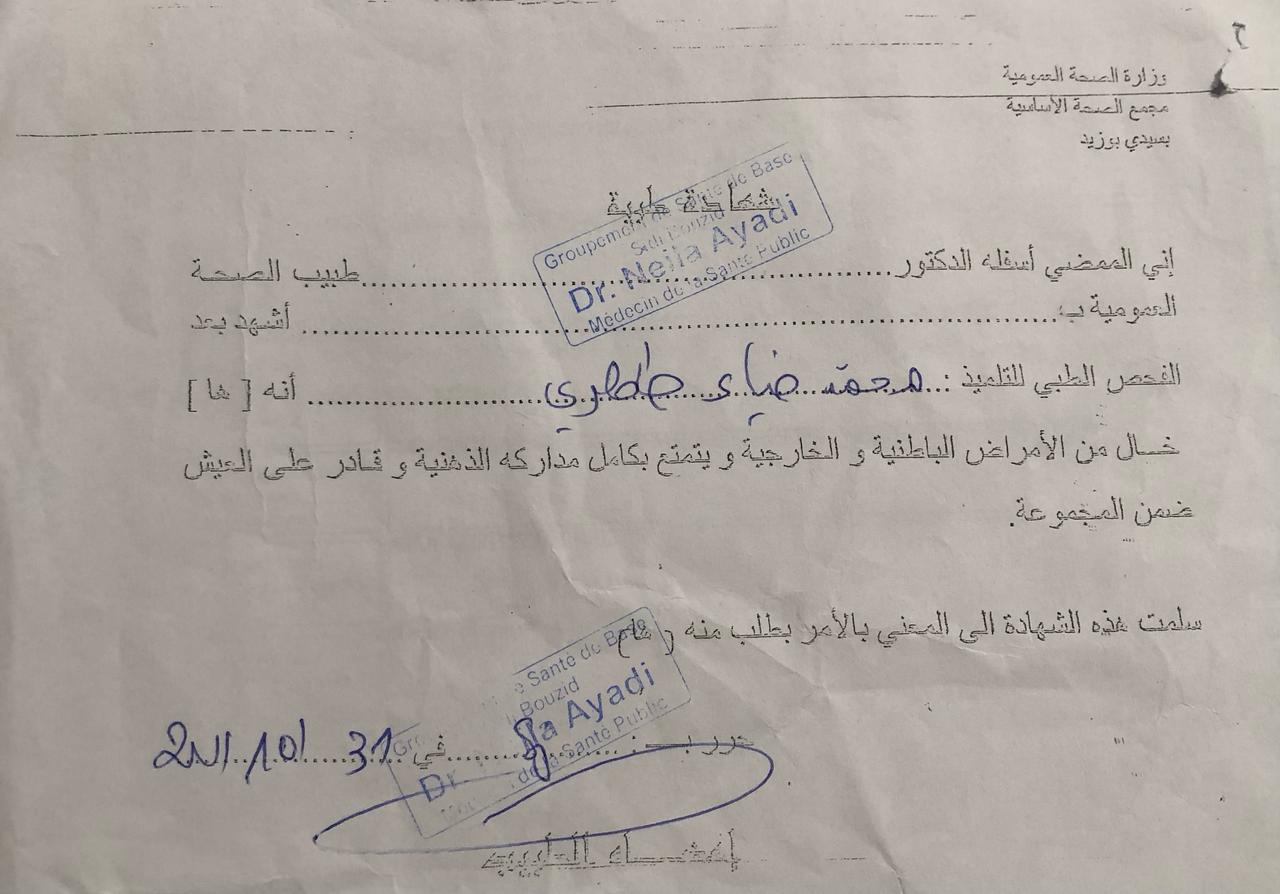 وزارة الصحة العمومية
مجمع الصحة الأساسية
بسيدي بوزيد
شهادة طبية
Groupement de Santé de Base
Sidi Bouzid
Dr. Neila Ayadi
Médecin de la Santé Public
إني الممضي أسفله الدكتور ........................ طبيب الصحة
العمومية بـ: ........................ أشهد بعد
الفحص الطبي للتلميذ : محمد ضياء طاهري ........................ أنه [ ها ]
خال من الأمراض الباطنية و الخارجية و يتمتع بكامل مداركه الذهنية و قادر على العيش
ضمن المجموعة.
سلمت هذه الشهادة الى المعني بالأمر بطلب منه [ ها ]
Santé de Base
Bouzid
Dr. Ayadi
de la Santé Public
حرر بـ : ............ في 31 10
إمضاء الطبيب